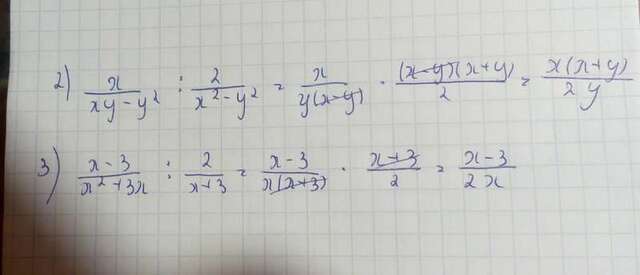 2) x/(xy-y²) : 2/(x²-y²) = x/(y(x-y)) · ((x-y)(x+y))/2 = (x(x+y))/(2y)
3) (x-3)/(x²+3x) : 2/(x+3) = (x-3)/(x(x+3)) · (x+3)/2 = (x-3)/(2x)